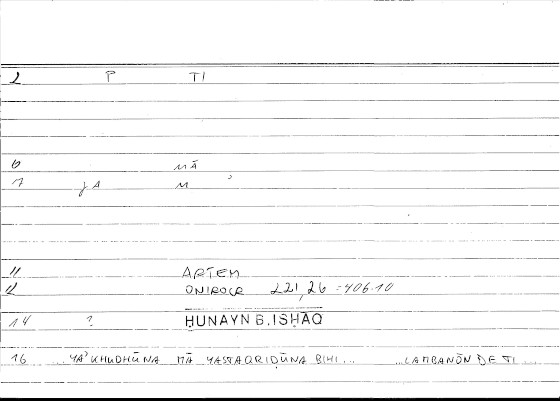 2 P TI
6 MĀ
7 JA M
11 ARTEM
12 ONIROCR 221,26 = 406.10
14 ? HUNAYN B. ISḤĀQ
16 ...YA'KHUDHŪNA MĀ YASTAQRIDŪNA BIHI... ...LAMBANŌN DE TI...